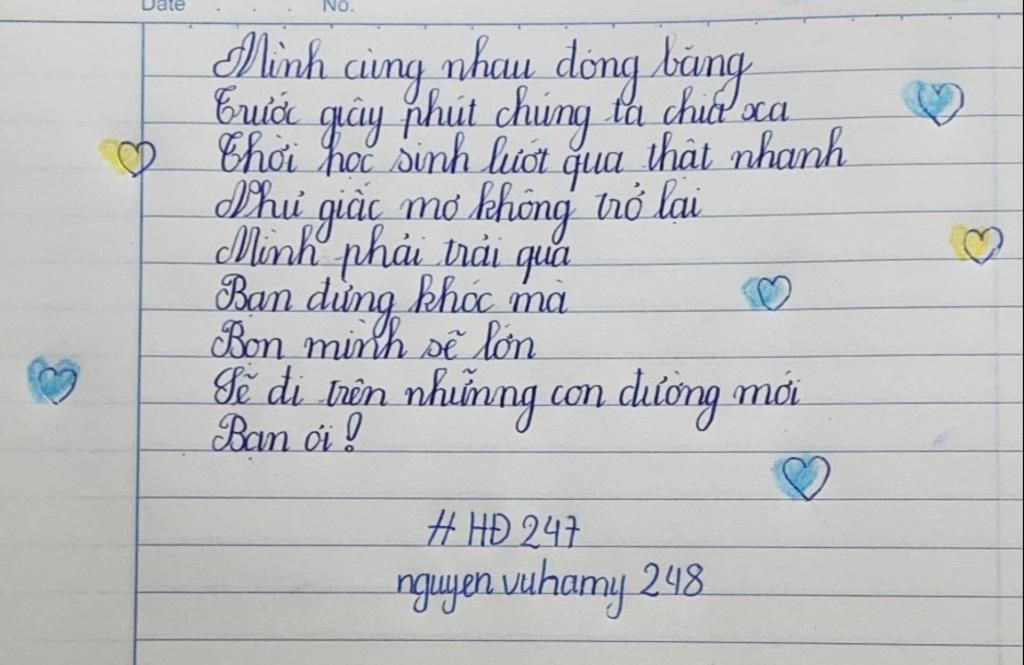 Date . . . No.
Mình cùng nhau đóng băng
Trước giây phút chúng ta chia xa
Thời học sinh lướt qua thật nhanh
Như giấc mơ không trở lại
Mình phải trải qua
Bạn đừng khóc mà
Bọn mình sẽ lớn
Sẽ đi trên nhữnng con đường mới
Bạn ơi!
# HĐ 247
nguyen vuhamy 248